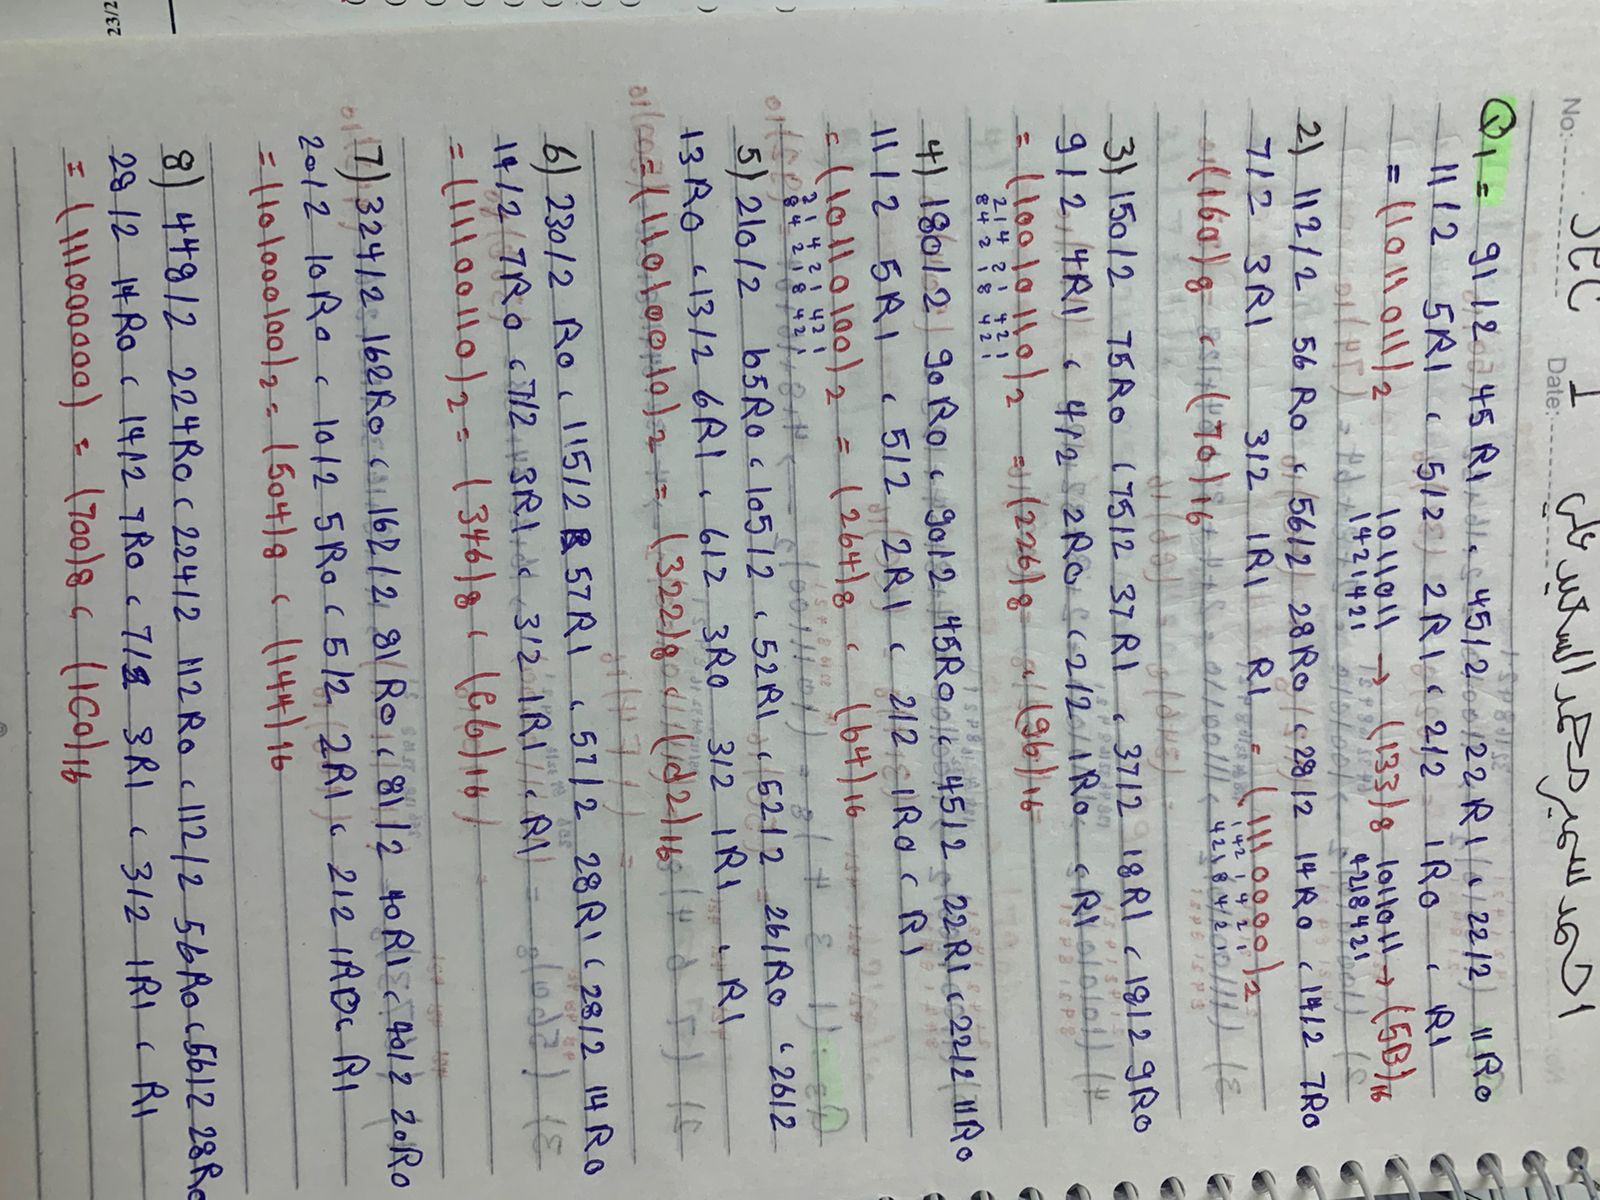 No: Sec 1 Date: احمد سمير محمد السعيد علي
Q1 = 91/2 45R1 ، 45/2 22R1 ، 22/2 11R0
11/2 5R1 ، 5/2 2R1 ، 2/2 1R0 ، R1
= (1011011)2 1011011 → (133)8 1011011 → (5B)16
1421421 4218421
2) 112/2 56R0 ، 56/2 28R0 ، 28/2 14R0 ، 14/2 7R0
7/2 3R1 3/2 1R1 R1 = (1110000)2
1421421
4218421
(160)8 ، (70)16
3) 150/2 75R0 ، 75/2 37R1 ، 37/2 18R1 ، 18/2 9R0
9/2 4R1 ، 4/2 2R0 ، 2/2 1R0 ، R1
= (10010110)2 = (226)8 ، (96)16
21421421
84218421
4) 180/2 90R0 ، 90/2 45R0 ، 45/2 22R1 ، 22/2 11R0
11/2 5R1 ، 5/2 2R1 ، 2/2 1R0 ، R1
= (10110100)2 = (264)8 ، (b4)16
21421421
84218421
5) 210/2 b5R0 ، 105/2 ، 52R1 ، 52/2 26R0 ، 26/2
13R0 ، 13/2 6R1 ، 6/2 3R0 3/2 1R1 ، R1
= (11010010)2 = (322)8 ، (d2)16
6) 230/2 R0 ، 115/2 57R1 ، 57/2 28R1 ، 28/2 14R0
14/2 7R0 ، 7/2 3R1 ، 3/2 1R1 ، R1
= (11100110)2 = (346)8 ، (E6)16
7) 324/2 162R0 ، 162/2 81R0 ، 81/2 40R1 ، 40/2 20R0
20/2 10R0 ، 10/2 5R0 ، 5/2 2R1 ، 2/2 1R0 ، R1
= (101000100)2 = (504)8 ، (144)16
8) 448/2 224R0 ، 224/2 112R0 ، 112/2 56R0 ، 56/2 28R0
28/2 14R0 ، 14/2 7R0 ، 7/2 3R1 ، 3/2 1R1 ، R1
= (111000000) = (700)8 ، (1C0)16
23/2